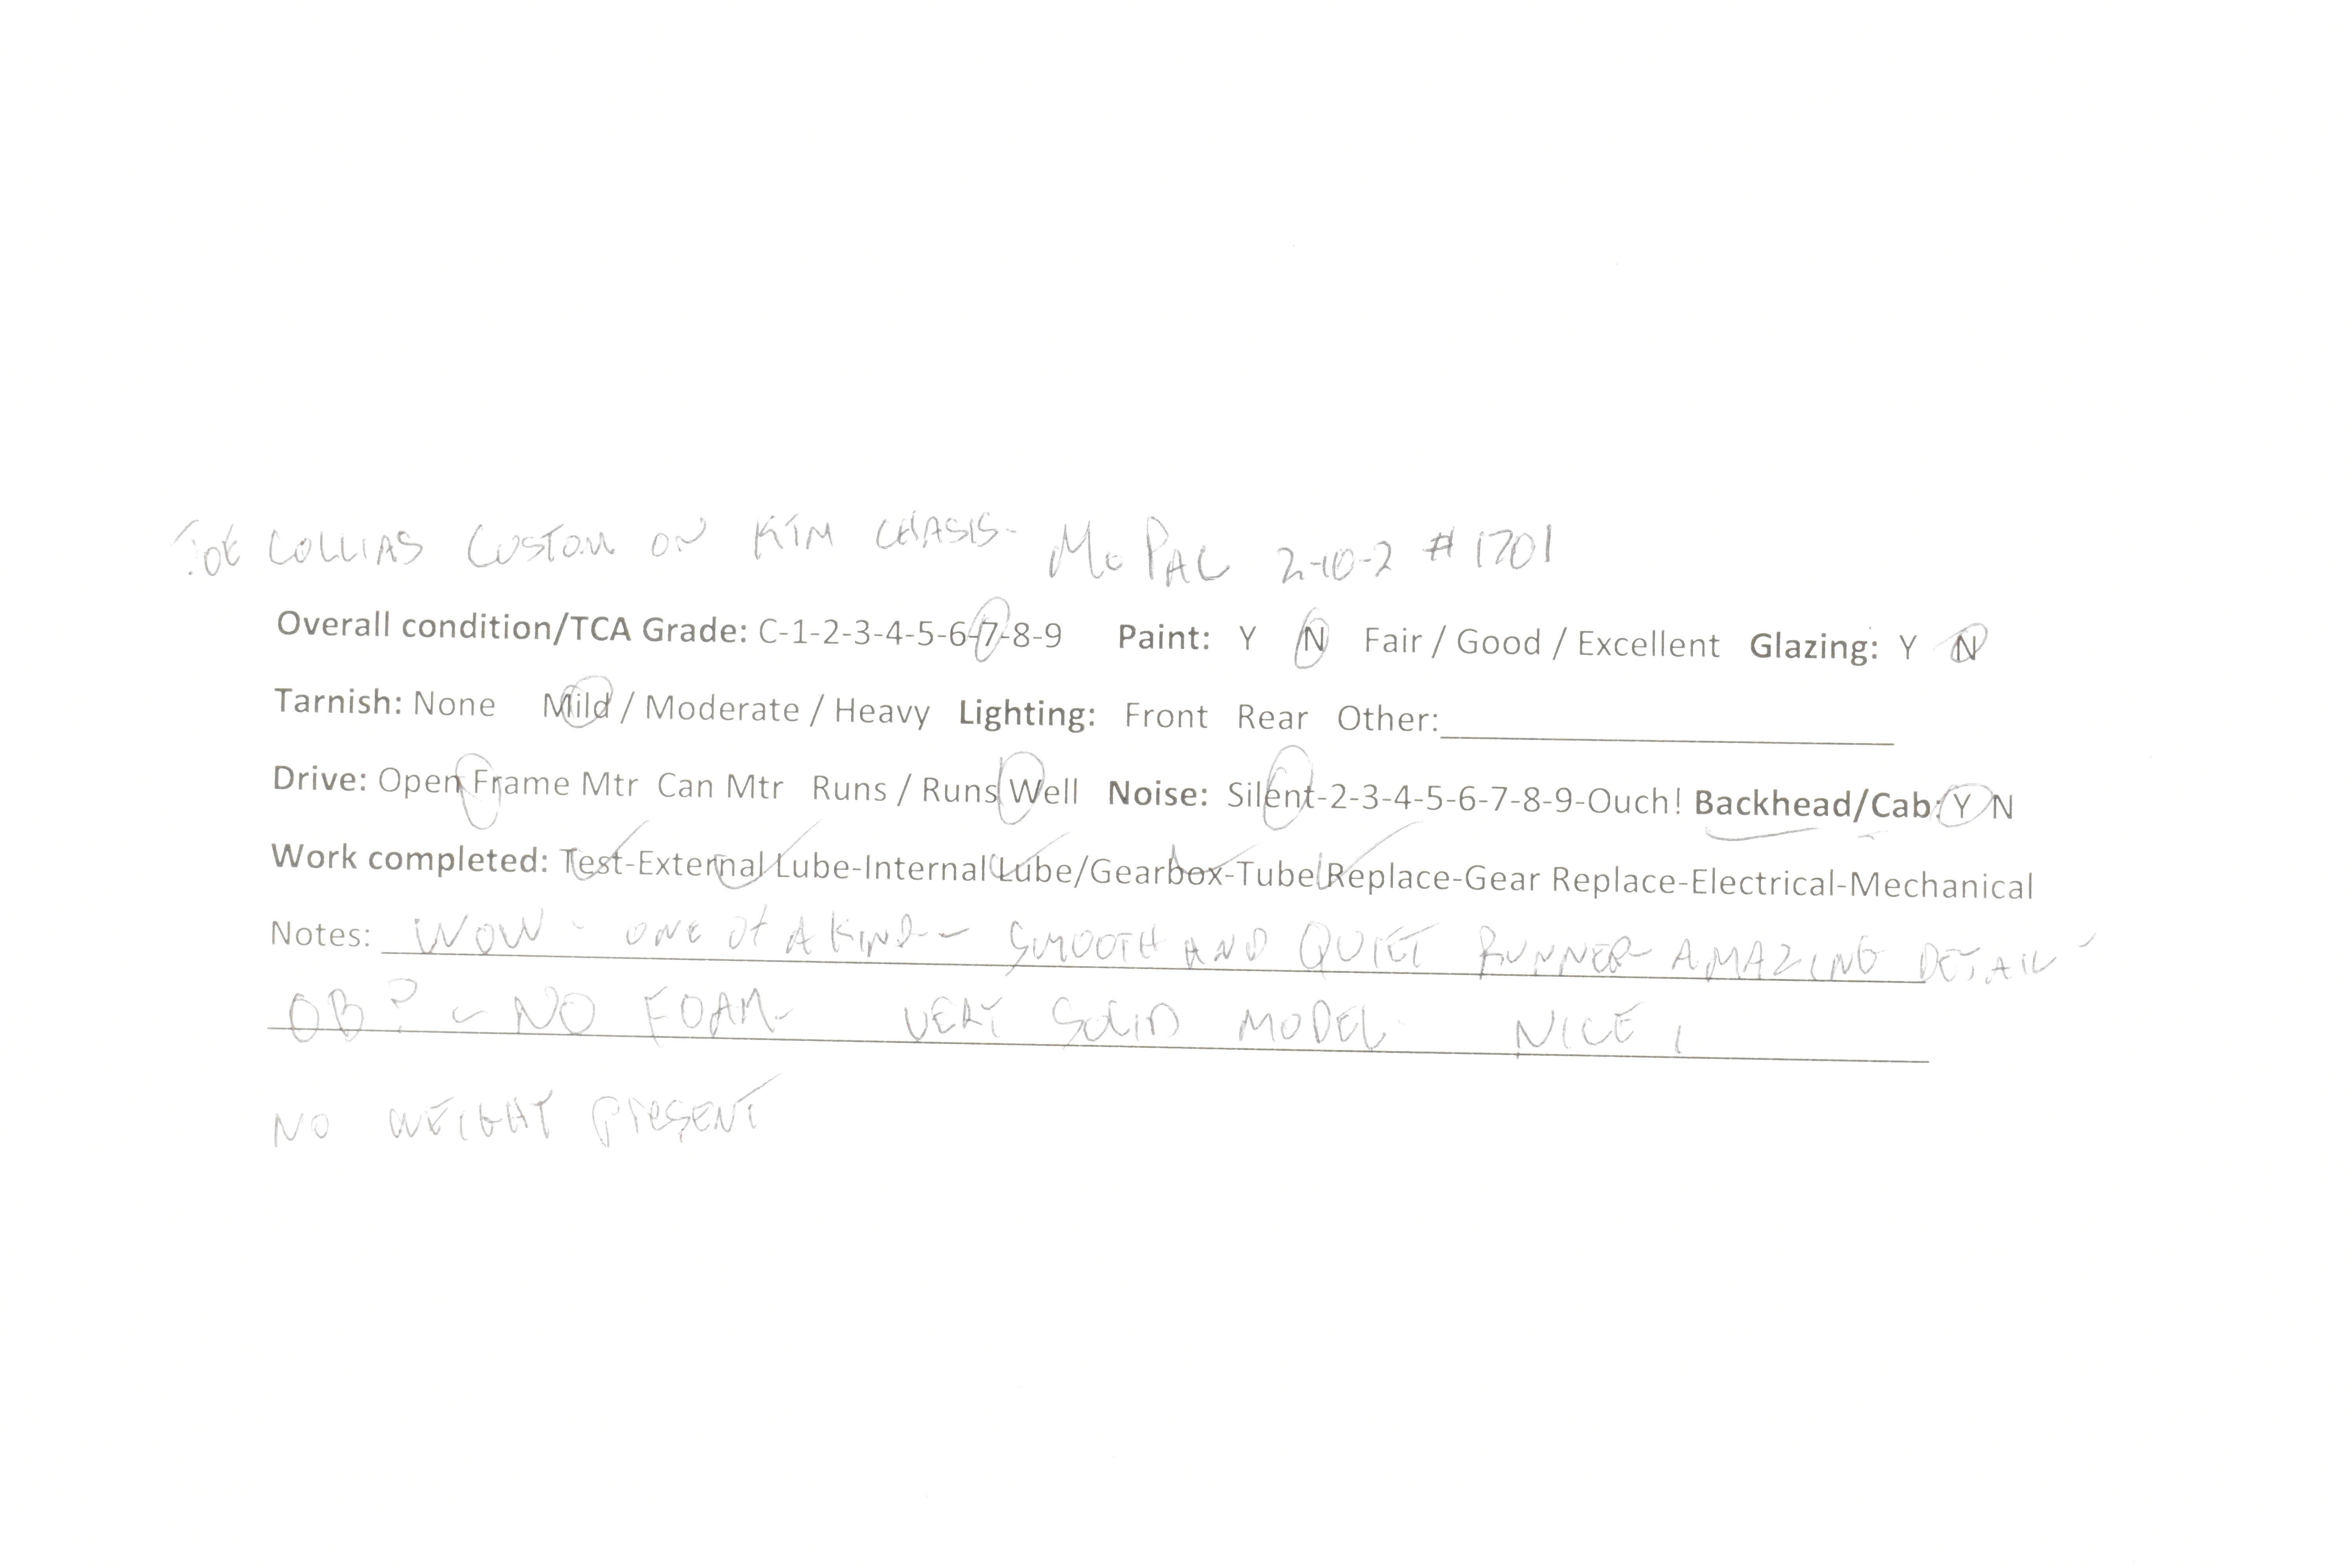 JOE COLLIAS CUSTOM ON KTM CHASIS- MO PAC 2-10-2 #1701
Overall condition/TCA Grade: C-1-2-3-4-5-6-7-8-9 Paint: Y N Fair / Good / Excellent Glazing: Y N
Tarnish: None Mild / Moderate / Heavy Lighting: Front Rear Other:
Drive: Open Frame Mtr Can Mtr Runs / Runs Well Noise: Silent-2-3-4-5-6-7-8-9-Ouch! Backhead/Cab: Y N
Work completed: Test-External Lube-Internal Lube/Gearbox-Tube Replace-Gear Replace-Electrical-Mechanical
Notes: WOW - ONE OF A KIND - SMOOTH AND QUIET RUNNER- AMAZING DETAIL -
OB? - NO FOAM- VERY SOLID MODEL NICE!
NO WEIGHT PRESENT